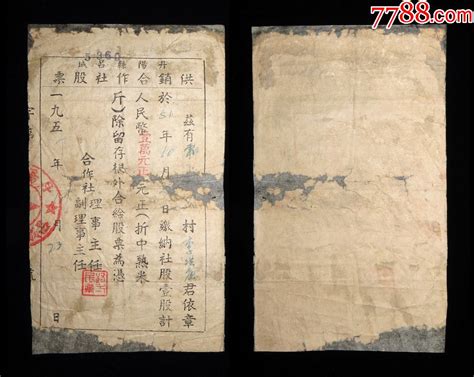 7788.com
丹陽縣呂城
供銷合作社股票
茲有村君依章
於51年10月日繳納社股壹股計
人民幣壹萬元正元正(折中熟米
斤)除留存根外合給股票為憑
合作社理事主任
副理事主任
一九五年月日
字第號